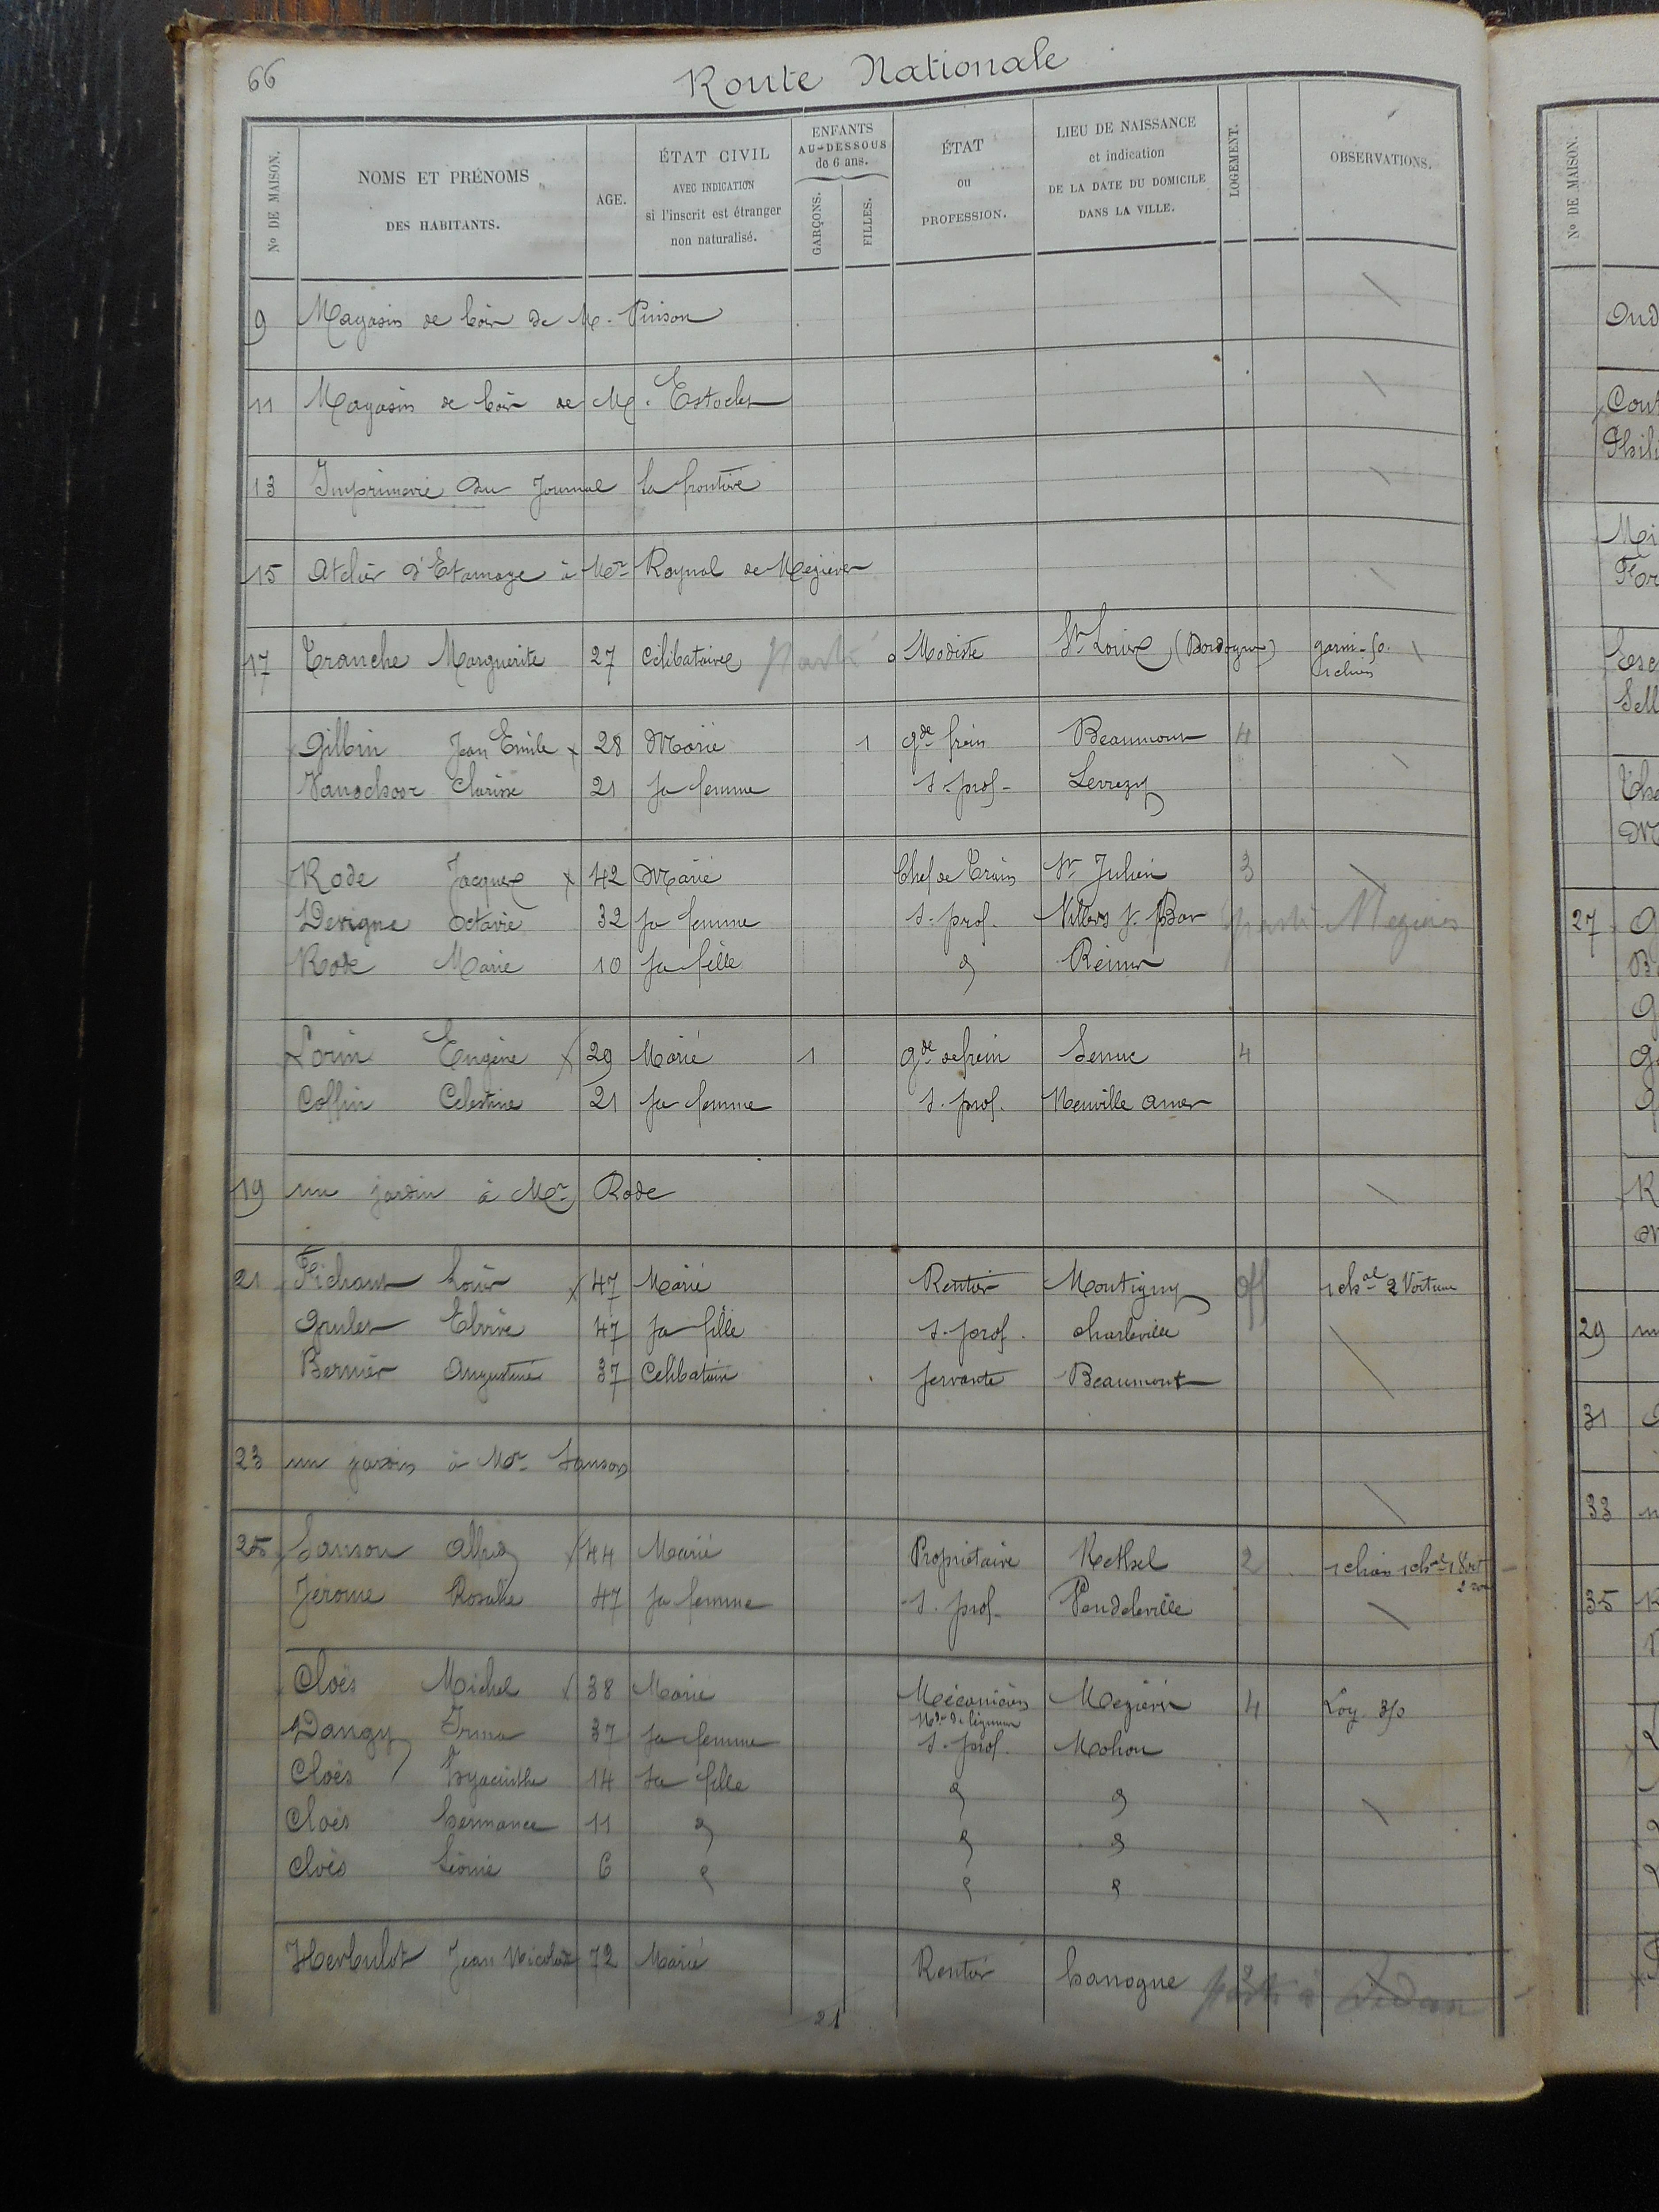 66
Route Nationale
No DE MAISON. NOMS ET PRÉNOMS DES HABITANTS. AGE. ÉTAT CIVIL AVEC INDICATION si l'inscrit est étranger non naturalisé. ENFANTS AU-DESSOUS de 6 ans. GARÇONS. FILLES. ÉTAT ou PROFESSION. LIEU DE NAISSANCE et indication DE LA DATE DU DOMICILE DANS LA VILLE. LOGEMENT. OBSERVATIONS.
9 Magasin de bois de M. Pinson
11 Magasin de bois de M. Estocles
13 Imprimerie du Journal la frontière
15 Atelier d'Etamage à Mr Raynal de Mezières
17 Tranche Marguerite 27 Célibataire Parti Modiste St Louis (Dordogne) garni
Gilbin Jean Emile x 28 Marié 1 gde frein Beaumont 4
Clarisse 21 sa femme s. prof. Levrezy
Rode Jacques x 42 Marié Chef de Train St Julien 3
Devigne Octavie 32 sa femme s. prof. Villers s. Bar parti Mezières
Rode Marie 10 sa fille " Reims
Lorin Eugène x 29 Marié 1 gde de frein Senuc 4
Coffin Celestine 21 sa femme s. prof. Neuville
19 un jardin à Mr Rode
21 Fichant Louis x 47 Marié Rentier Montigny 1 chal 2 Voiture
47 sa fille s. prof. Charleville
Bernier Augustine 37 Célibataire servante Beaumont
23 un jardin à Mr Sanson
25 Sanson Alfred x 44 Marié Propriétaire Rethel 2 1 chien
Jérome Rosalie 47 sa femme s. prof.
Cloës Michel x 38 Marié Mécanicien Mezières 4
Dangy Irma 37 sa femme Mde de légumes s. prof. Mohon
Cloës Hyacinthe 14 sa fille " "
Cloës hermance 11 " " "
Cloës Léonie 6 " " "
Herbulot Jean Nicolas 72 Marié Rentier hanogne parti à Sedan
21
No DE MAISON.
27
29
31
33
35